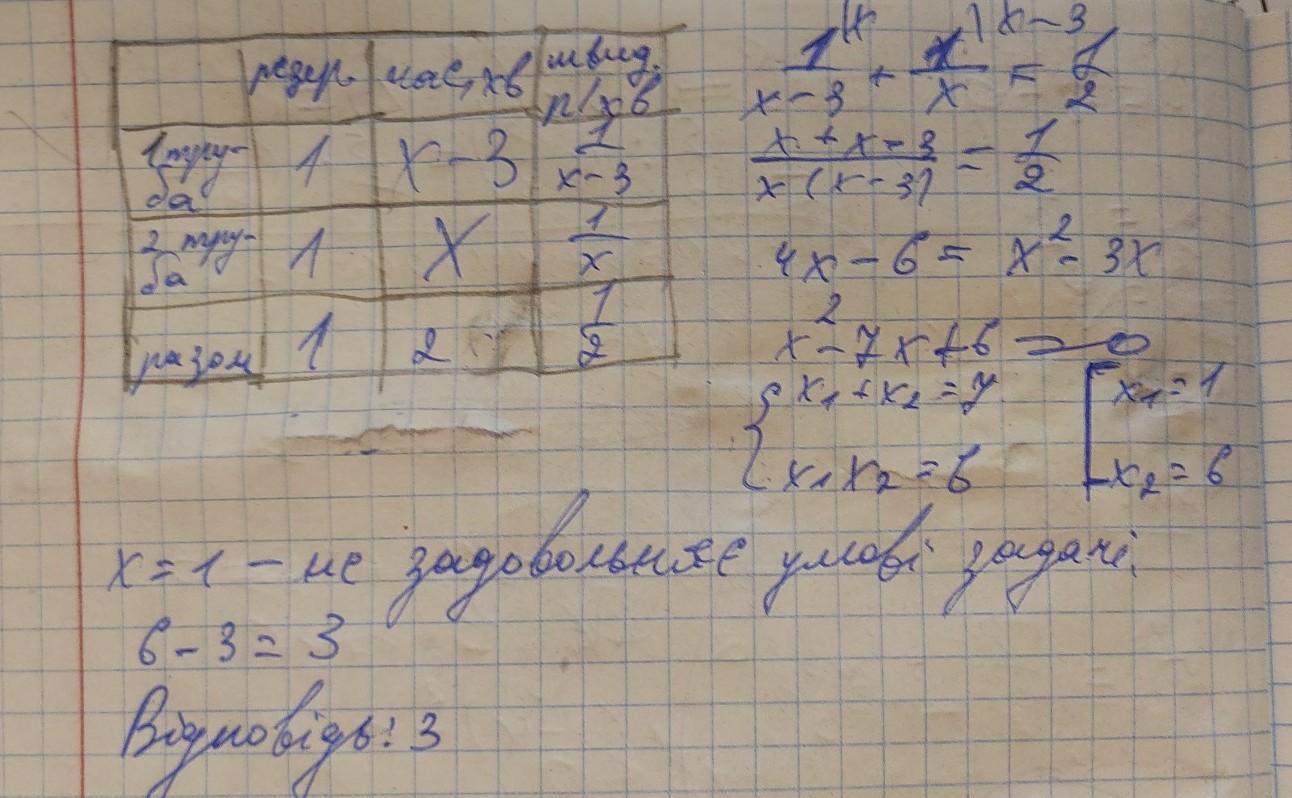 резер. час, хв швид. р/хв
1 тру-ба 1 x-3 1/(x-3)
2 тру-ба 1 x 1/x
разом 1 2 1/2
1/(x-3) (x + 1/x )x-3 = 1/2
(x + x - 3)/(x(x-3)) = 1/2
4x - 6 = x² - 3x
x² - 7x + 6 = 0
{ x₁ + x₂ = 7 [ x₁ = 1
x₁x₂ = 6 x₂ = 6
x = 1 - не задовольняє умові задачі.
6 - 3 = 3
Відповідь: 3